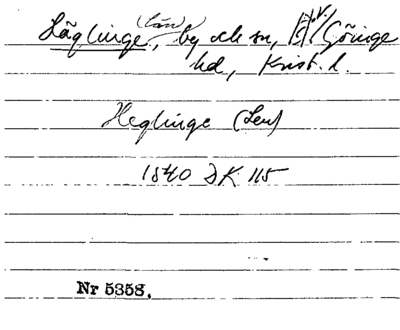 Häglinge, by och sn, V. Göinge
hd, Krist. l.
Heglinge (Len)
1540 DK 115
Nr 5358.